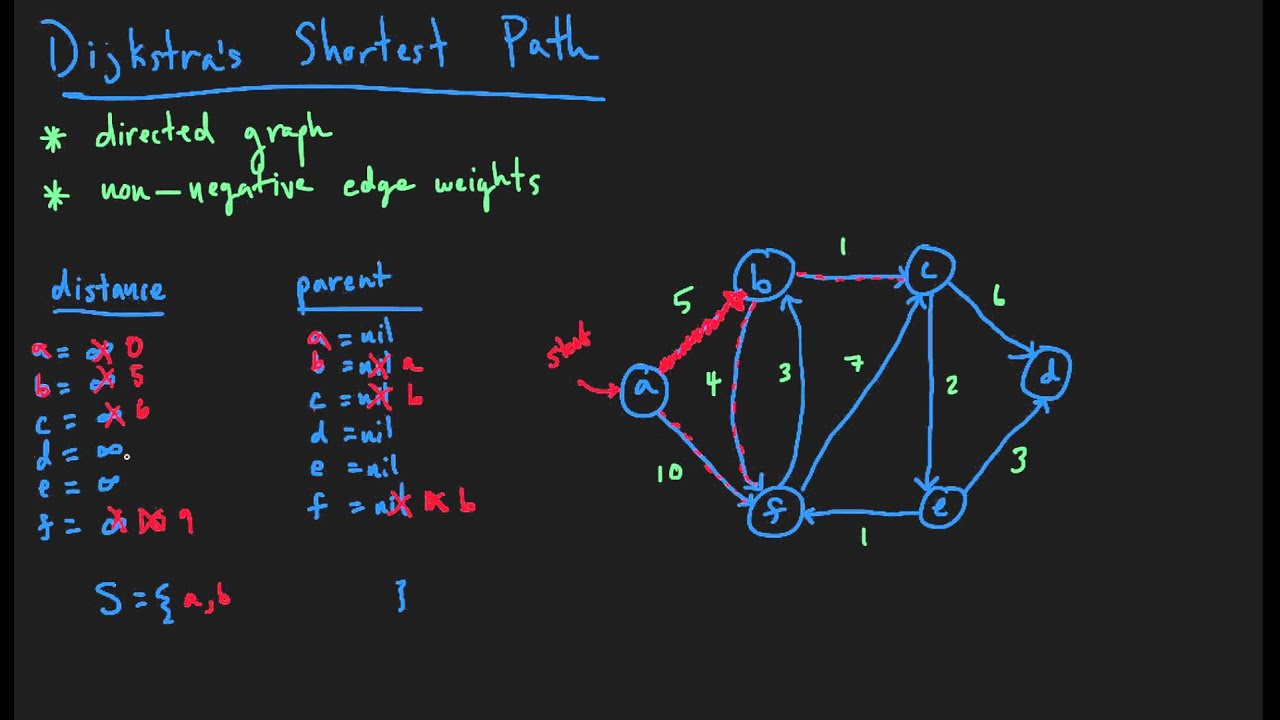 Dijkstra's Shortest Path
* directed graph
* non-negative edge weights
distance
a = ∞ 0
b = ∞ 5
c = ∞ 6
d = ∞
e = ∞
f = ∞ 9
parent
a = nil
b = nil a
c = nil b
d = nil
e = nil
f = nil b
S = { a, b }
start
a
b
c
d
e
f
5
1
6
4
3
7
2
10
3
1